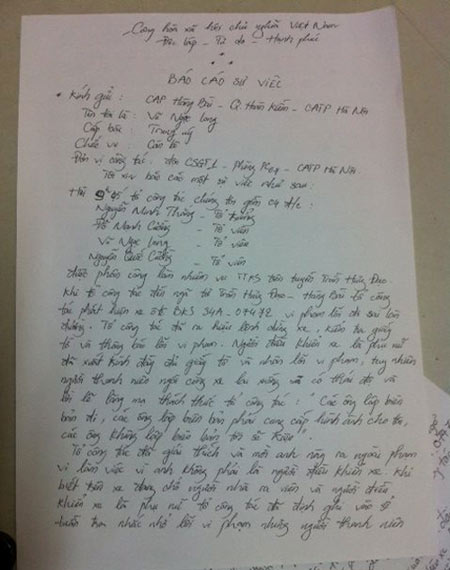 Cộng hòa xã hội chủ nghĩa Việt Nam
Độc lập - Tự do - Hạnh phúc
BÁO CÁO SỰ VIỆC
Kính gửi: CAP Hàng Bài - Q. Hoàn Kiếm - CATP Hà Nội
Tên tôi là: Vũ Ngọc Long
Cấp bậc: Trung úy
Chức vụ: Cán bộ
Đơn vị công tác: Đội CSGT 1 - Phòng - CATP Hà Nội.
Tôi xin báo cáo một sự việc như sau:
Hồi tổ công tác chúng tôi gồm 04 đ/c:
Nguyễn Minh Thắng - Tổ trưởng
Đỗ Mạnh Cường - Tổ viên
Vũ Ngọc Long - Tổ viên
Nguyễn Quốc Cường - Tổ viên
được phân công làm nhiệm vụ TTKS trên tuyến Trần Hưng Đạo.
Khi tổ công tác đến ngã tư Trần Hưng Đạo - Hàng Bài tổ công
tác phát hiện xe ô tô BKS 34A-07472 vi phạm lỗi đi sai làn
đường. Tổ công tác đã ra hiệu lệnh dừng xe, kiểm tra giấy
tờ và thông báo lỗi vi phạm. Người điều khiển xe là phụ nữ
đã xuất trình đầy đủ giấy tờ và nhận lỗi vi phạm, tuy nhiên
người thanh niên ngồi cùng xe lại xuống và có thái độ và
lời lẽ lăng mạ thách thức tổ công tác: "Các ông lập biên
bản đi, các ông lập biên bản phải cung cấp hình ảnh cho tôi,
các ông không lập biên bản tôi sẽ kiện".
Tổ công tác đã giải thích và mời anh này ra ngoài phạm
vi làm việc vì anh không phải là người điều khiển xe. Khi
biết trên xe đang chở người nhà ra viện và người điều
khiển xe là phụ nữ tổ công tác đã định ghi vào sổ
tuần tra nhắc nhở lỗi vi phạm nhưng người thanh niên